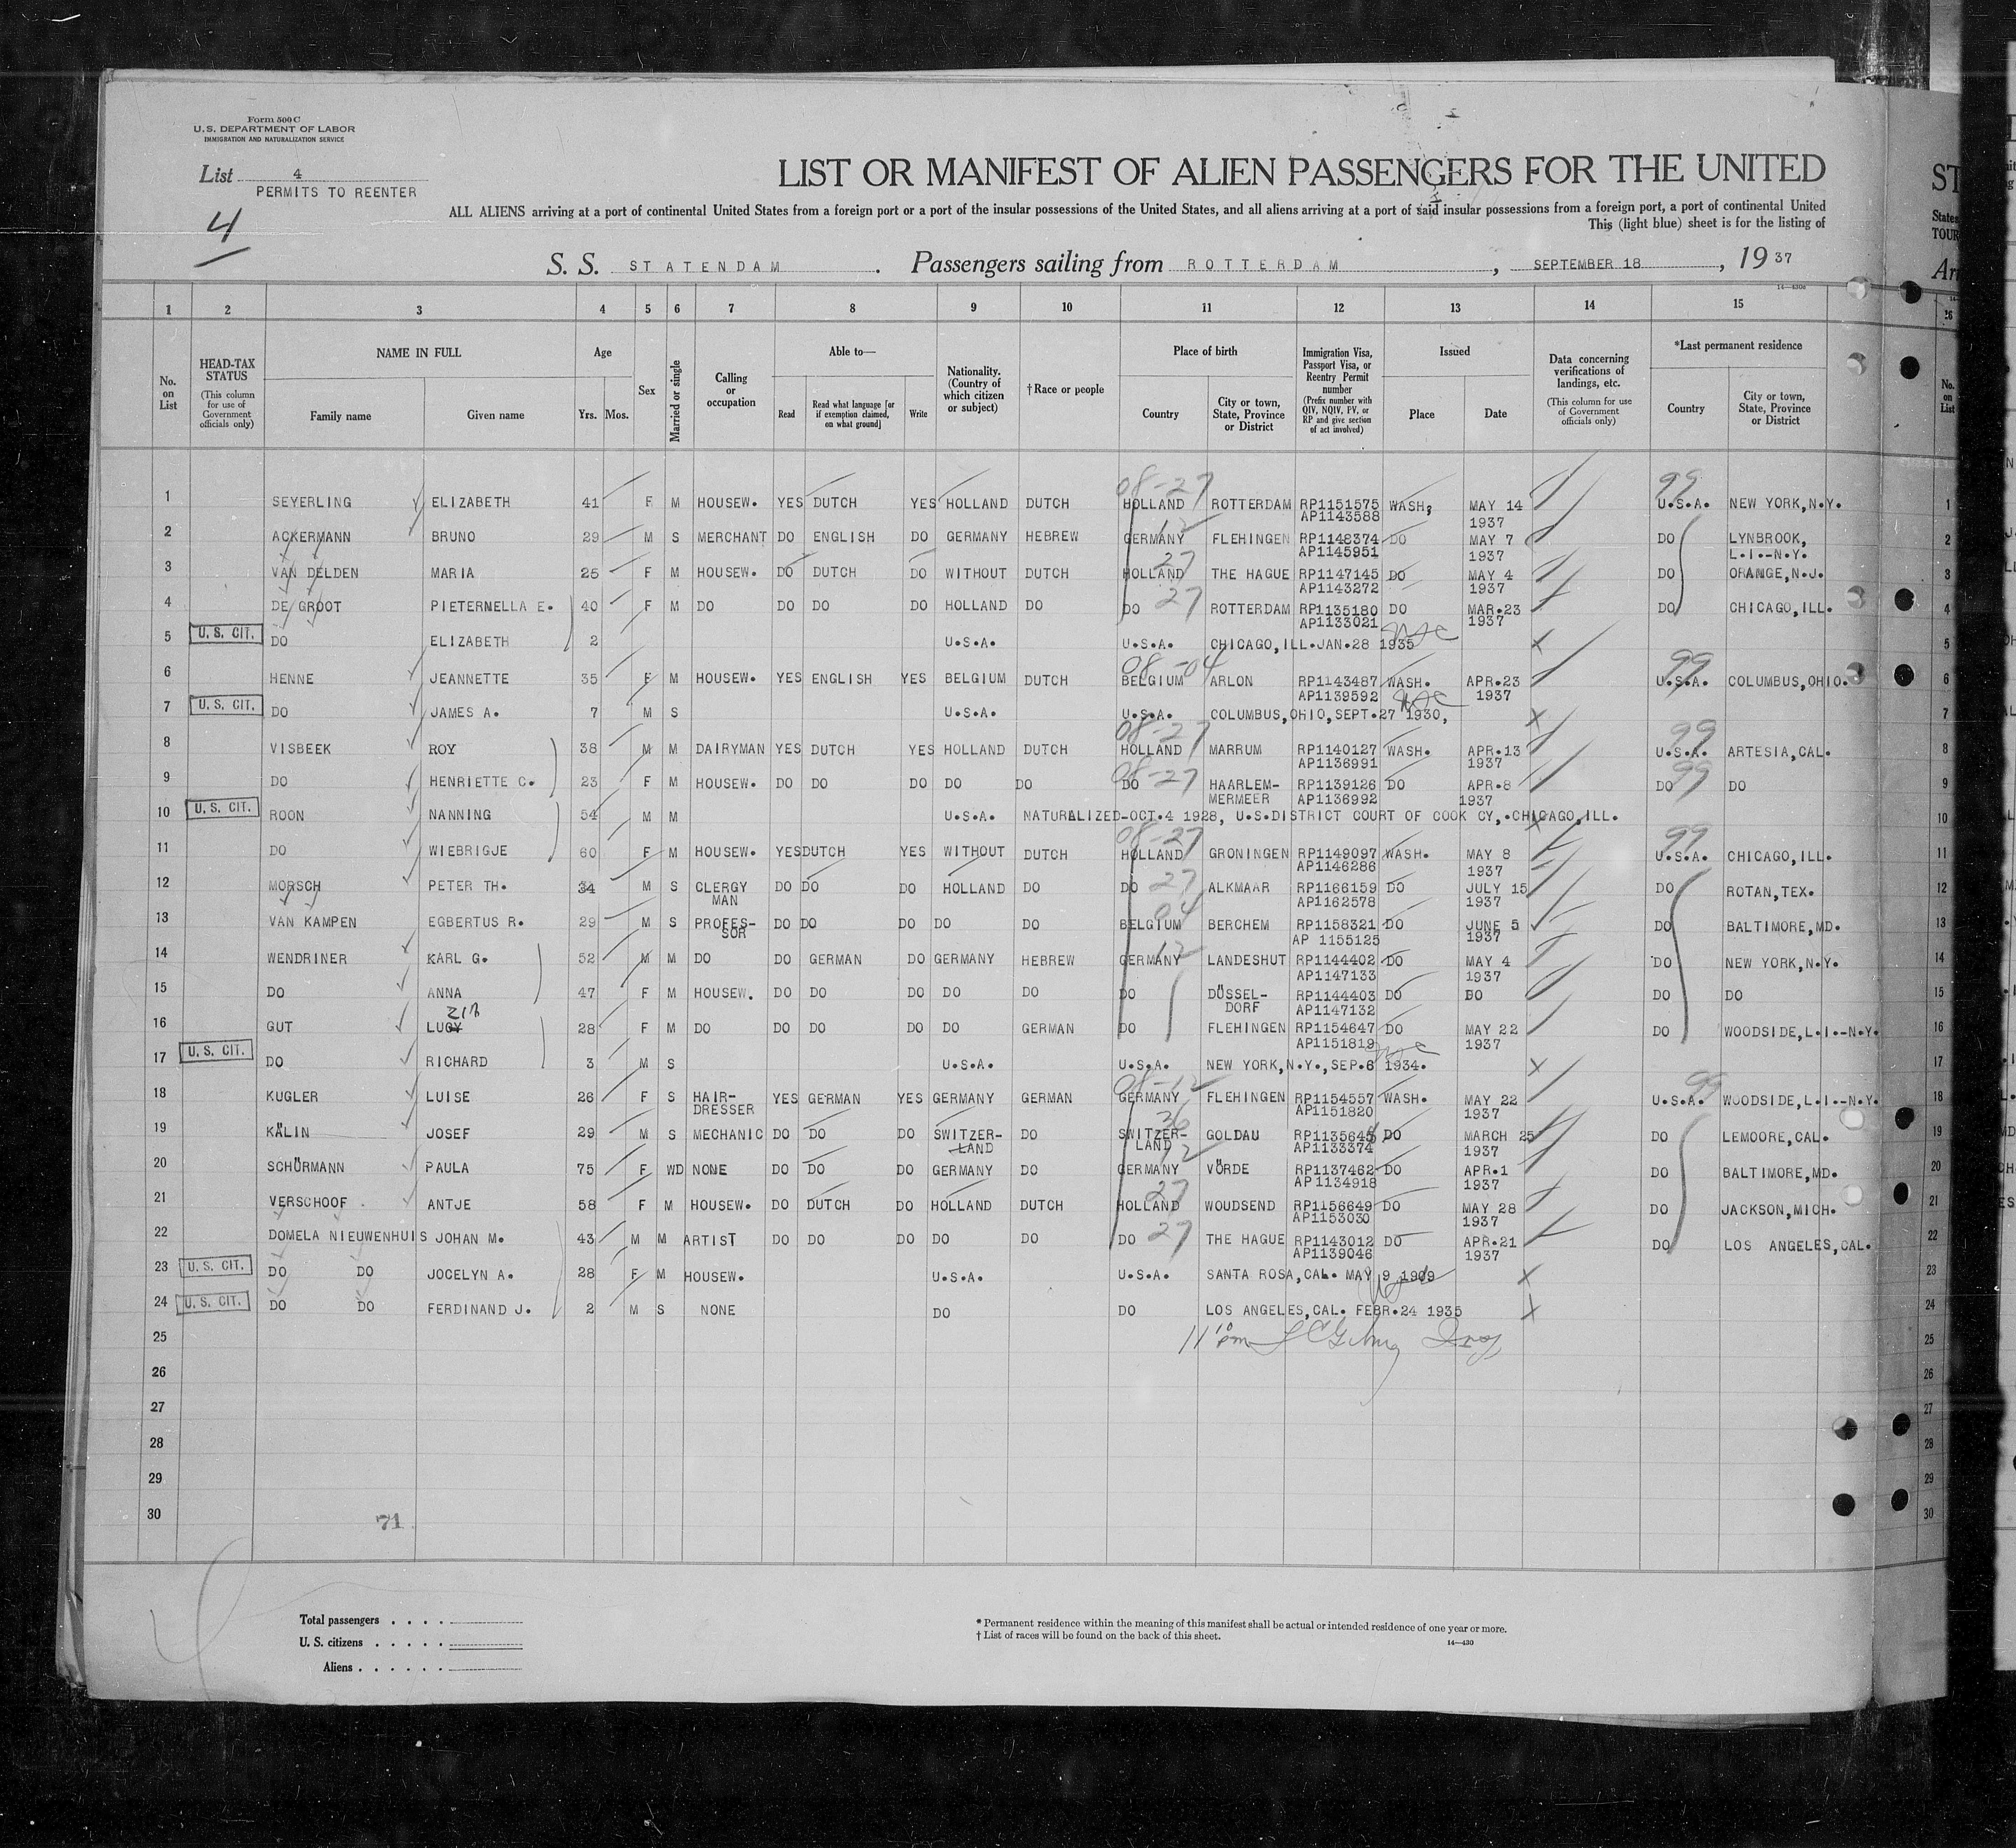 Form 500 C
U. S. DEPARTMENT OF LABOR
IMMIGRATION AND NATURALIZATION SERVICE
List 4
PERMITS TO REENTER
4
LIST OR MANIFEST OF ALIEN PASSENGERS FOR THE UNITED
ST
ALL ALIENS arriving at a port of continental United States from a foreign port or a port of the insular possessions of the United States, and all aliens arriving at a port of said insular possessions from a foreign port, a port of continental United
States
This (light blue) sheet is for the listing of
TOUR
S. S. STATENDAM . Passengers sailing from ROTTERDAM , SEPTEMBER 18 , 19 37
14—430a
1 2 3 4 5 6 7 8 9 10 11 12 13 14 15
No. on List
HEAD-TAX STATUS (This column for use of Government officials only)
NAME IN FULL Family name Given name
Age Yrs. Mos.
Sex
Married or single
Calling or occupation
Able to— Read Read what language [or if exemption claimed, on what ground] Write
Nationality. (Country of which citizen or subject)
†Race or people
Place of birth Country City or town, State, Province or District
Immigration Visa, Passport Visa, or Reentry Permit number (Prefix number with QIV, NQIV, PV, or RP and give section of act involved)
Issued Place Date
Data concerning verifications of landings, etc. (This column for use of Government officials only)
*Last permanent residence Country City or town, State, Province or District
No. on List
08-27 99
1 SEYERLING ELIZABETH 41 F M HOUSEW. YES DUTCH YES HOLLAND DUTCH HOLLAND ROTTERDAM RP1151575 AP1143588 WASH, MAY 14 1937 U.S.A. NEW YORK,N.Y. 1
2 ACKERMANN BRUNO 29 M S MERCHANT DO ENGLISH DO GERMANY HEBREW GERMANY 12 FLEHINGEN RP1148374 AP1145951 DO MAY 7 1937 DO LYNBROOK, L.I.-N.Y. 2
3 VAN DELDEN MARIA 25 F M HOUSEW. DO DUTCH DO WITHOUT DUTCH HOLLAND 27 THE HAGUE RP1147145 AP1143272 DO MAY 4 1937 DO ORANGE,N.J. 3
4 DE GROOT PIETERNELLA E. 40 F M DO DO DO DO HOLLAND DO DO 27 ROTTERDAM RP1135180 AP1133021 DO MAR.23 1937 DO CHICAGO,ILL. 4
5 U. S. CIT. DO ELIZABETH 2 U.S.A. U.S.A. CHICAGO,ILL.JAN.28 1935 X 5
08-04 99
6 HENNE JEANNETTE 35 F M HOUSEW. YES ENGLISH YES BELGIUM DUTCH BELGIUM ARLON RP1143487 AP1139592 WASH. APR.23 1937 U.S.A. COLUMBUS,OHIO. 6
7 U. S. CIT. DO JAMES A. 7 M S U.S.A. U.S.A. COLUMBUS,OHIO,SEPT.27 1930, X 7
08-27 99
8 VISBEEK ROY 38 M M DAIRYMAN YES DUTCH YES HOLLAND DUTCH HOLLAND MARRUM RP1140127 AP1136991 WASH. APR.13 1937 U.S.A. ARTESIA,CAL. 8
9 DO HENRIETTE C. 23 F M HOUSEW. DO DO DO DO DO DO 08-27 HAARLEM-MERMEER RP1139126 AP1136992 DO APR.8 1937 DO 99 DO 9
10 U. S. CIT. ROON NANNING 54 M M U.S.A. NATURALIZED-OCT.4 1928, U.S.DISTRICT COURT OF COOK CY,.CHICAGO,ILL. X 10
08-27 99
11 DO WIEBRIGJE 60 F M HOUSEW. YES DUTCH YES WITHOUT DUTCH HOLLAND GRONINGEN RP1149097 AP1146286 WASH. MAY 8 1937 U.S.A. CHICAGO,ILL. 11
12 MORSCH PETER TH. 34 M S CLERGY MAN DO DO DO HOLLAND DO DO 27 ALKMAAR RP1166159 AP1162578 DO JULY 15 1937 DO ROTAN,TEX. 12
13 VAN KAMPEN EGBERTUS R. 29 M S PROFES-SOR DO DO DO DO DO BELGIUM 04 BERCHEM RP1158321 AP 1155125 DO JUNE 5 1937 DO BALTIMORE,MD. 13
14 WENDRINER KARL G. 52 M M DO DO GERMAN DO GERMANY HEBREW GERMANY 12 LANDESHUT RP1144402 AP1147133 DO MAY 4 1937 DO NEW YORK,N.Y. 14
15 DO ANNA 47 F M HOUSEW. DO DO DO DO DO DO DÜSSEL-DORF RP1144403 AP1147132 DO DO DO DO 15
16 GUT LUCY 28 F M DO DO DO DO DO GERMAN DO FLEHINGEN RP1154647 AP1151819 DO MAY 22 1937 DO WOODSIDE,L.I.-N.Y. 16
17 U. S. CIT. DO RICHARD 3 M S U.S.A. U.S.A. NEW YORK,N.Y.,SEP.6 1934. X 17
08-12 99
18 KUGLER LUISE 26 F S HAIR-DRESSER YES GERMAN YES GERMANY GERMAN GERMANY FLEHINGEN RP1154557 AP1151820 WASH. MAY 22 1937 U.S.A. WOODSIDE,L.I.-N.Y. 18
19 KÄLIN JOSEF 29 M S MECHANIC DO DO DO SWITZER-LAND DO SWITZER-LAND 36 GOLDAU RP1135645 AP1133374 DO MARCH 25 1937 DO LEMOORE,CAL. 19
20 SCHÜRMANN PAULA 75 F WD NONE DO DO DO GERMANY DO GERMANY 12 VÖRDE RP1137462 AP1134918 DO APR.1 1937 DO BALTIMORE,MD. 20
21 VERSCHOOF ANTJE 58 F M HOUSEW. DO DUTCH DO HOLLAND DUTCH HOLLAND 27 WOUDSEND RP1156649 AP1153030 DO MAY 28 1937 DO JACKSON,MICH. 21
22 DOMELA NIEUWENHUIS JOHAN M. 43 M M ARTIST DO DO DO DO DO DO 27 THE HAGUE RP1143012 AP1139046 DO APR.21 1937 DO LOS ANGELES,CAL. 22
23 U. S. CIT. DO DO JOCELYN A. 28 F M HOUSEW. U.S.A. U.S.A. SANTA ROSA,CAL. MAY 9 1909 X 23
24 U. S. CIT. DO DO FERDINAND J. 2 M S NONE DO DO LOS ANGELES,CAL. FEBR.24 1935 X 24
25 25
26 26
27 27
28 28
29 29
30 30
71
Total passengers
U. S. citizens
Aliens
* Permanent residence within the meaning of this manifest shall be actual or intended residence of one year or more.
† List of races will be found on the back of this sheet.
14—430